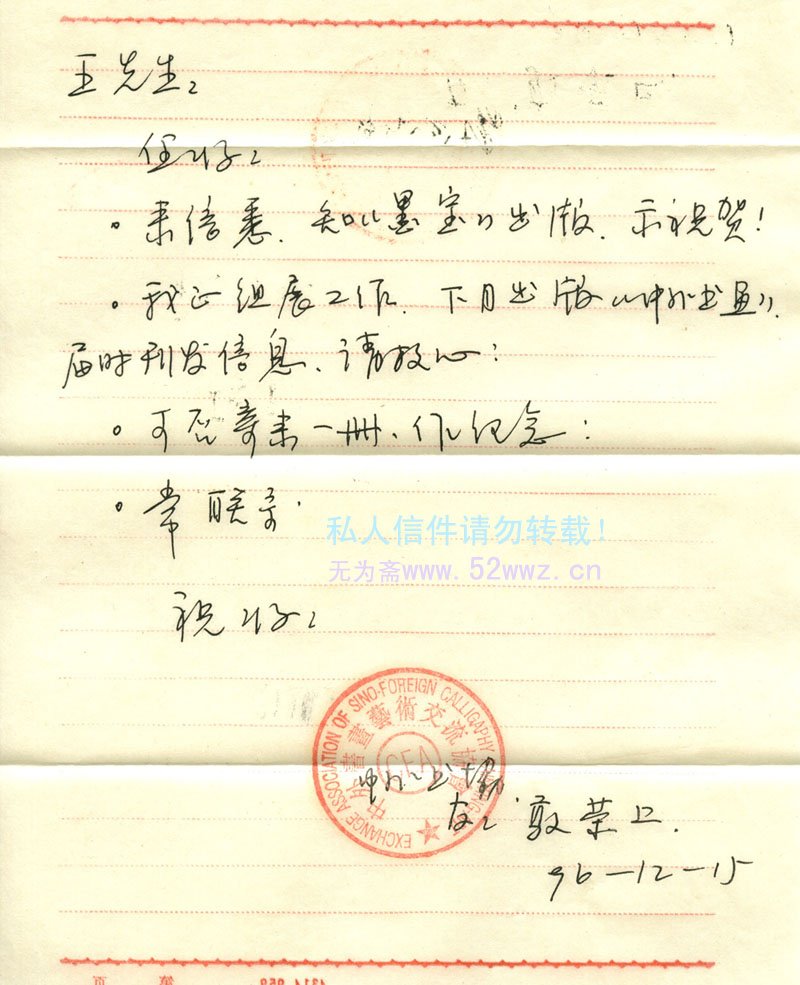 王先生：
任好：
。来信悉、知《墨宝》出版、示祝贺！
。我正组展工作、下月出版《中外书画》、
届时刊发信息、请放心：
。可否寄来一册、作纪念：
。常联系.
私人信件请勿转载！
无为斋www.52wwz.cn
祝好：
EXCHANGE ASSOCIATION OF SINO-FOREIGN CALLIGAPHY
中外書畫藝術交流協會
CFA
友：荣上.
96-12-15